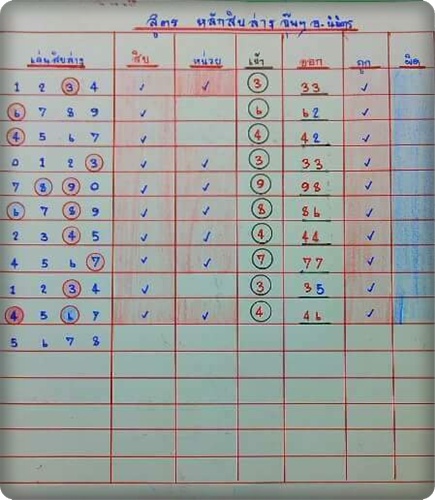 สูตร หลักสิบล่าง
เล่นสิบล่าง สิบ หน่วย เข้า ออก ถูก ผิด
1 2 3 4 ✓ ✓ 3 33 ✓
6 7 8 9 ✓ 6 62 ✓
4 5 6 7 ✓ 4 42 ✓
0 1 2 3 ✓ ✓ 3 33 ✓
7 8 9 0 ✓ ✓ 9 98 ✓
6 7 8 9 ✓ ✓ 8 86 ✓
2 3 4 5 ✓ ✓ 4 44 ✓
4 5 6 7 ✓ ✓ 7 77 ✓
1 2 3 4 ✓ 3 35 ✓
4 5 6 7 ✓ ✓ 4 46 ✓
5 6 7 8